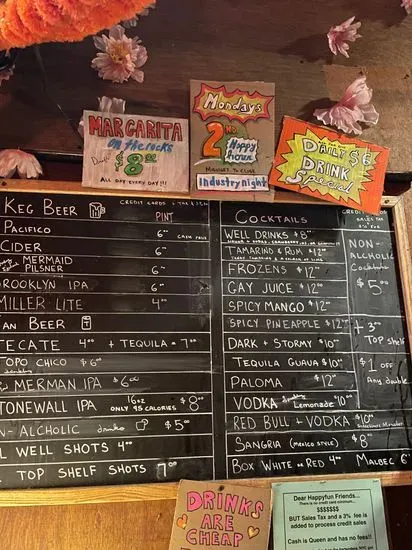 MARGARITA
on the rocks
$8.00
ALL DAY EVERY DAY!!!
Mondays
2ND
Happy
hour
MIDNIGHT TO CLOSE
industry night
DAILY $6
DRINK
Special
KEG BEER
CREDIT CARDS
PINT
PACIFICO 6
CIDER 6
MERMAID
PILSNER 6
ROOKLYN IPA 6
MILLER LITE 4
AN BEER
TECATE 4 + TEQUILA = 7
TOPO CHICO $6
MERMAN IPA $6
TONEWALL IPA 16oz
ONLY 95 CALORIES $8
N-ALCHOLIC drinks $5
L WELL SHOTS 4
TOP SHELF SHOTS 7
COCKTAILS
WELL DRINKS $8
TAMARIND & RUM $12
FROZENS $12
GAY JUICE $12
SPICY MANGO $12
SPICY PINEAPPLE $12
DARK + STORMY $10
TEQUILA GUAVA $10
PALOMA $12
VODKA Sparkling Lemonade 10
RED BULL + VODKA $10
SANGRIA (MEXICO STYLE) $8
BOX WHITE or RED 4 MALBEC 6
NON-
ALCHOLIC
Cocktails
$5
+ 3
Top shelf
$1 OFF
Any double
DRINKS
ARE
CHEAP
Dear Happyfun Friends...
There is no credit card minimum...
$$$$$$$
BUT Sales Tax and a 3% fee is
added to process credit sales
Cash is Queen and has no fees!!